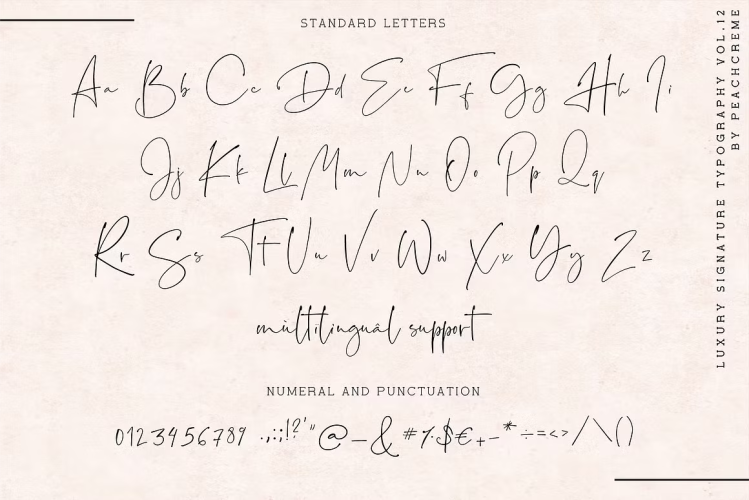 STANDARD LETTERS
Aa Bb Cc Dd Ee Ff Gg Hh Ii
Jj Kk Ll Mm Nn Oo Pp Qq
Rr Ss Tt Uu Vv Ww Xx Yy Zz
mùltilinguâl support
NUMERAL AND PUNCTUATION
0123456789 .,:;!?'" @_& #%$€+-*÷=<>/\()
LUXURY SIGNATURE TYPOGRAPHY VOL.12
BY PEACHCREME